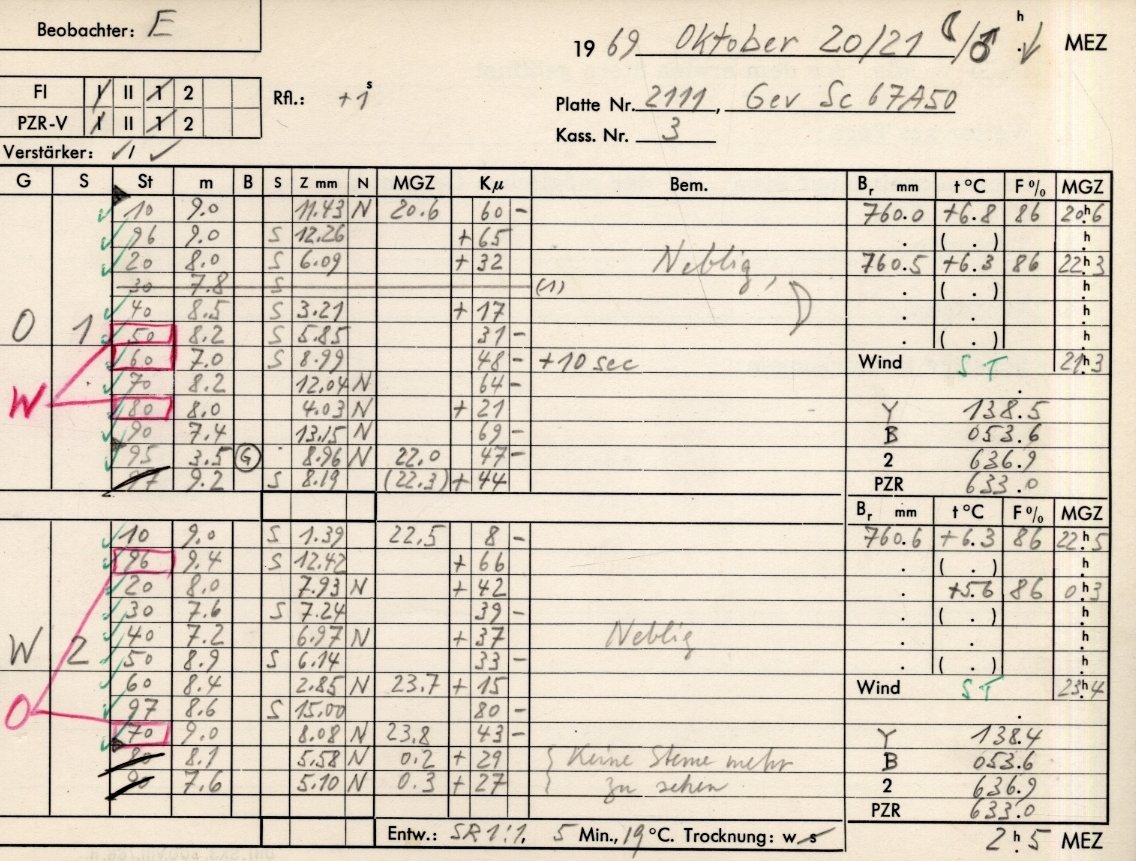 Beobachter: E
1969 Oktober 20/21 ☾/♂ h . MEZ
FI I II 1 2
PZR-V I II 1 2
Rfl.: +1s
Platte Nr. 2111, Gev Sc 67A50
Kass. Nr. 3
Verstärker: ✓ / ✓
G S St m B S Z mm N MGZ Kμ Bem. Br mm t°C F% MGZ
10 9.0 11.43 N 20.6 60 - 760.0 +6.8 86 20h6
96 9.0 S 12.26 + 65 . ( . ) h
20 8.0 S 6.09 + 32 Neblig, 760.5 +6.3 86 22h3
30 7.8 S (1) . ( . ) h
40 8.5 S 3.21 + 17 . . h
O 1 50 8.2 S 5.85 31 - . ( . ) h
60 7.0 S 8.99 48 - +10 sec Wind ST 21h3
70 8.2 12.04 N 64 - .
W 80 8.0 4.03 N + 21 Y 138.5
90 7.4 13.15 N 69 - B 053.6
95 3.5 G 8.96 N 22.0 47 - 2 636.9
97 9.2 S 8.19 (22.3) + 44 PZR 633.0
Br mm t°C F% MGZ
10 9.0 S 1.39 22.5 8 - 760.6 +6.3 86 22h5
96 9.4 S 12.42 + 66 . ( . ) h
20 8.0 7.93 N + 42 . +5.6 86 0h3
30 7.6 S 7.24 39 - . ( . ) h
W 2 40 7.2 6.97 N + 37 Neblig . . h
50 8.9 S 6.14 33 - . ( . ) h
60 8.4 2.85 N 23.7 + 15 Wind ST 23h4
O 97 8.6 S 15.00 80 - .
70 9.0 8.08 N 23.8 43 - Y 138.4
80 8.1 5.58 N 0.2 + 29 Keine Sterne mehr B 053.6
90 7.6 5.10 N 0.3 + 27 zu sehen 2 636.9
PZR 633.0
Entw.: SR 1:1, 5 Min., 19 °C. Trocknung: w s 2h5 MEZ